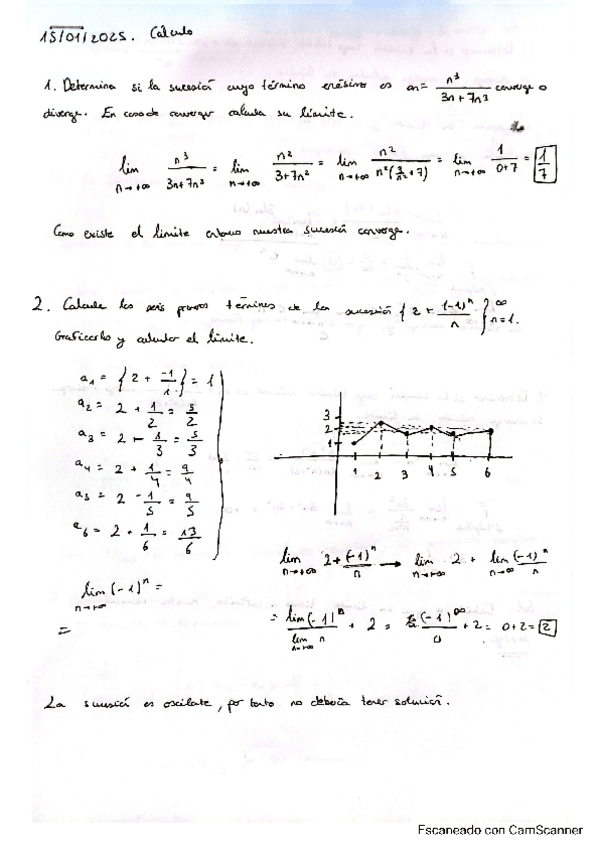 15/01/2025. Cálculo
1. Determina si la sucesión cuyo término enésimo es an = n³/(3n+7n³) converge o
diverge. En caso de converger calcula su límite.
lim n→+∞ n³/(3n+7n³) = lim n→+∞ n²/(3+7n²) = lim n→+∞ n²/(n²(3/n²+7)) = lim n→+∞ 1/(0+7) = 1/7
Como existe el límite entonces nuestra sucesión converge.
2. Calcule los seis primeros términos de la sucesión {2 + (-1)ⁿ/n}∞ n=1.
Graficarlo y calcular el límite.
a₁ = {2 + -1/1} = 1
a₂ = 2 + 1/2 = 5/2
a₃ = 2 - 1/3 = 5/3
a₄ = 2 + 1/4 = 9/4
a₅ = 2 - 1/5 = 9/5
a₆ = 2 + 1/6 = 13/6
3
2
1
1 2 3 4 5 6
lim n→+∞ 2 + (-1)ⁿ/n → lim n→+∞ 2 + lim n→∞ (-1)ⁿ/n
lim n→+∞ (-1)ⁿ =
= lim (-1)ⁿ / lim n→∞ n + 2 = (-1)^∞/0 + 2 = 0+2 = 2
=
La sucesión es oscilate, por tanto no debería tener solución.
Escaneado con CamScanner